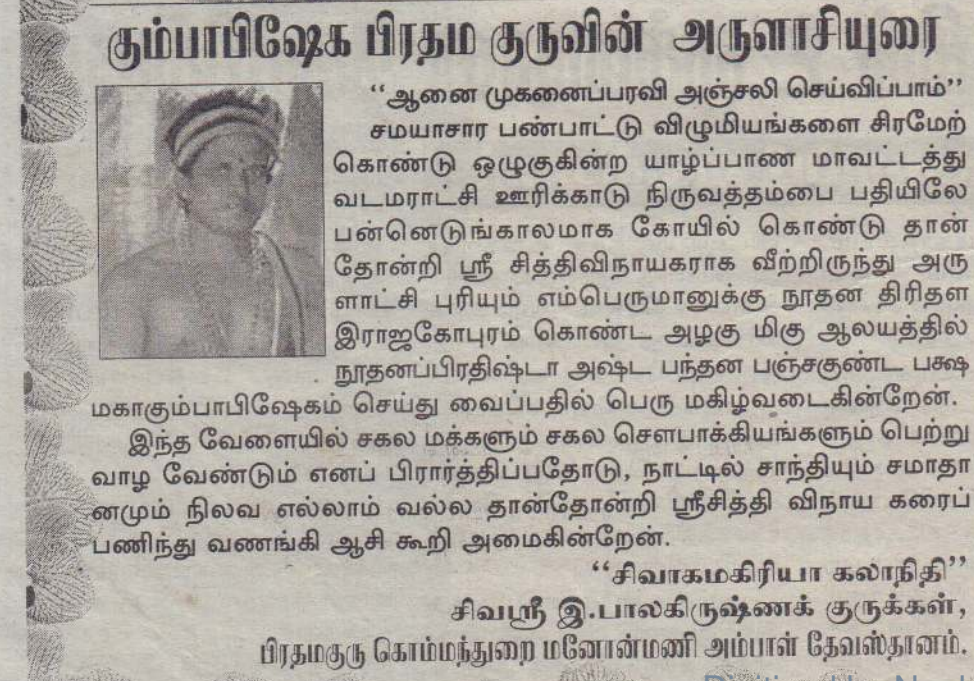 கும்பாபிஷேக பிரதம குருவின் அருளாசியுரை
“ஆனை முகனைப்பரவி அஞ்சலி செய்விப்பாம்”
சமயாசார பண்பாட்டு விழுமியங்களை சிரமேற்
கொண்டு ஒழுகுகின்ற யாழ்ப்பாண மாவட்டத்து
வடமராட்சி ஊரிக்காடு நிருவத்தம்பை பதியிலே
பன்னெடுங்காலமாக கோயில் கொண்டு தான்
தோன்றி ஸ்ரீ சித்திவிநாயகராக வீற்றிருந்து அரு
ளாட்சி புரியும் எம்பெருமானுக்கு நூதன திரிதள
இராஜகோபுரம் கொண்ட அழகு மிகு ஆலயத்தில்
நூதனப்பிரதிஷ்டா அஷ்ட பந்தன பஞ்சகுண்ட பக்ஷ
மகாகும்பாபிஷேகம் செய்து வைப்பதில் பெரு மகிழ்வடைகின்றேன்.
இந்த வேளையில் சகல மக்களும் சகல சௌபாக்கியங்களும் பெற்று
வாழ வேண்டும் எனப் பிரார்த்திப்பதோடு, நாட்டில் சாந்தியும் சமாதா
னமும் நிலவ எல்லாம் வல்ல தான்தோன்றி ஸ்ரீசித்தி விநாய கரைப்
பணிந்து வணங்கி ஆசி கூறி அமைகின்றேன்.
“சிவாகமகிரியா கலாநிதி”
சிவஸ்ரீ இ.பாலகிருஷ்ணக் குருக்கள்,
பிரதமகுரு கொம்மந்துறை மனோன்மணி அம்பாள் தேவஸ்தானம்.